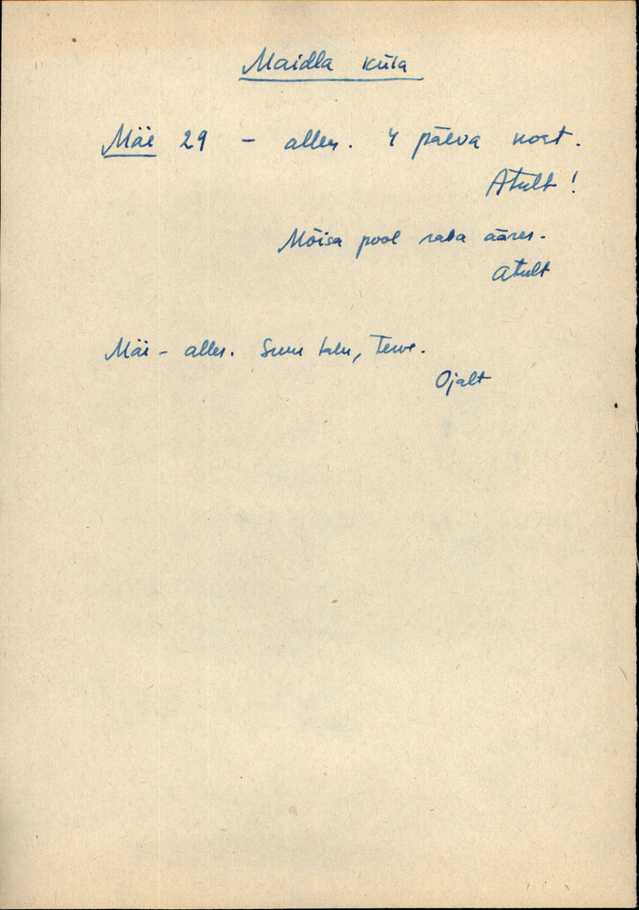 Maidla küla
Mäe 29 - alles. 4 päeva koht.
Atult!
Mõisa pool raba ääres.
Atult
Mäe - alles. Suur talu, Terve.
Ojalt